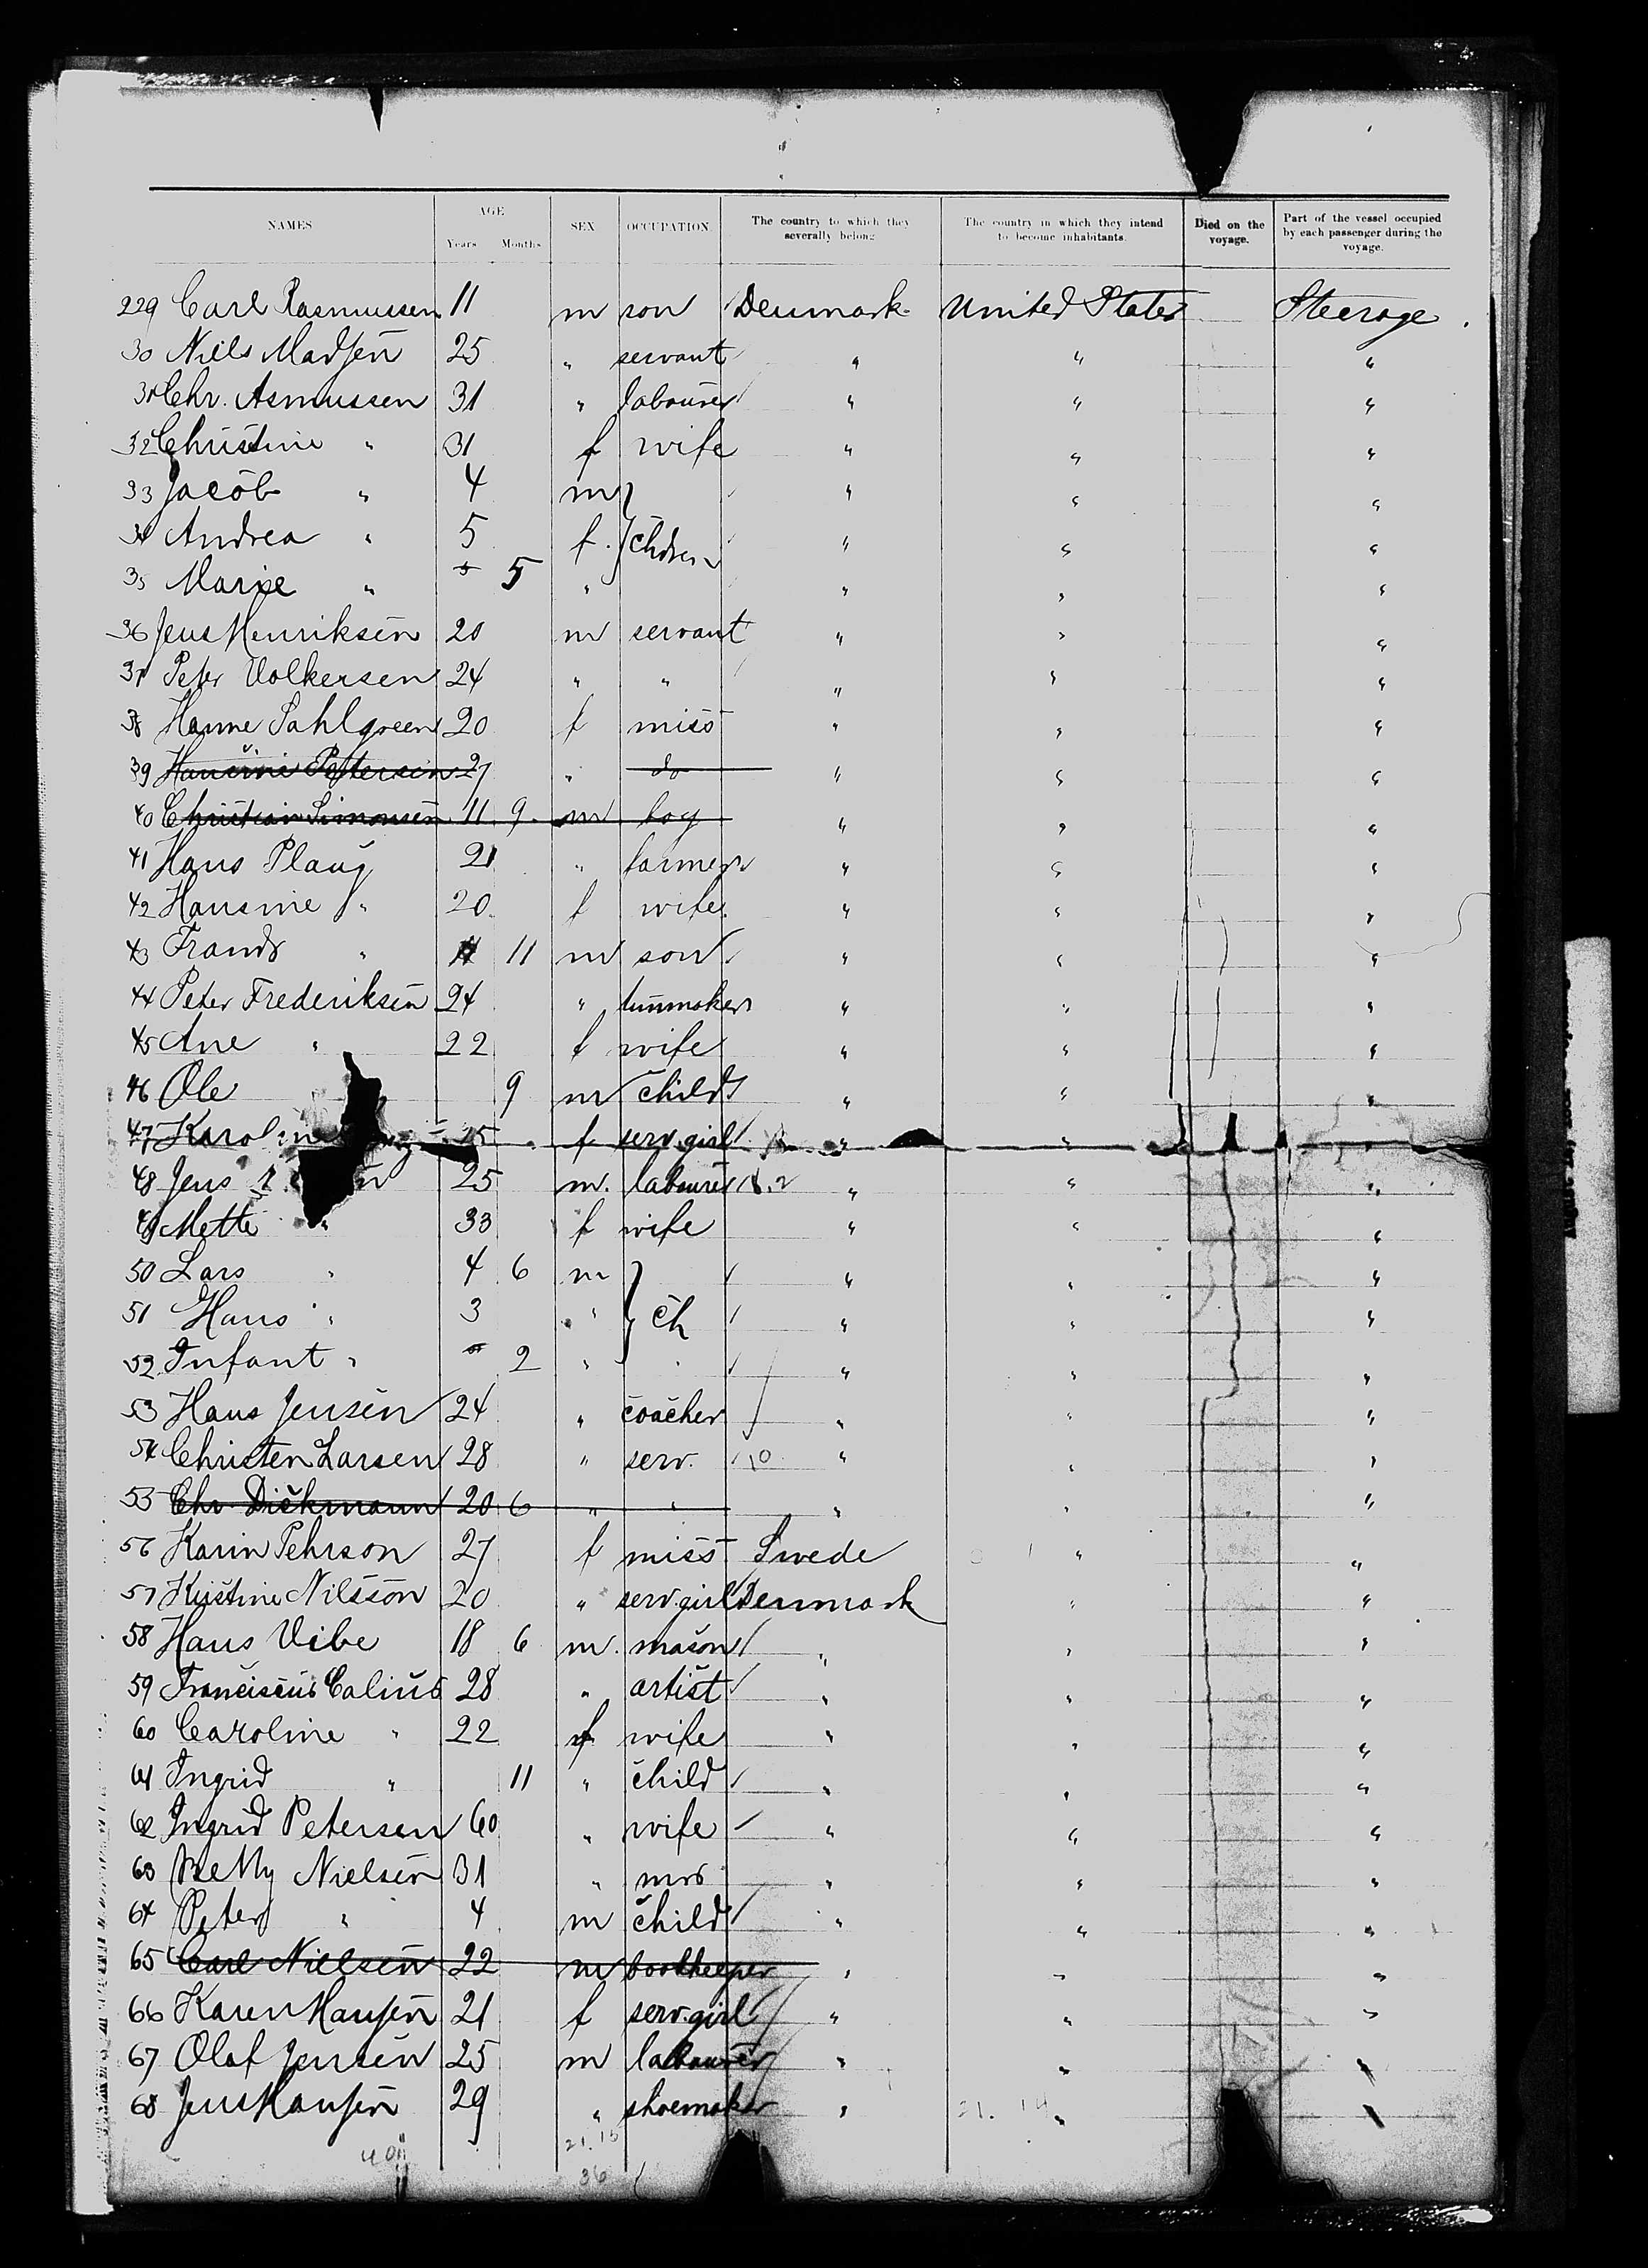 NAMES AGE Years Months SEX OCCUPATION The country to which they severally belong The country in which they intend to become inhabitants. Died on the voyage. Part of the vessel occupied by each passenger during the voyage.
229 Carl Rasmussen 11 m son Denmark United States Steerage
30 Niels Madsen 25 " servant " " "
31 Chr. Asmussen 31 " labourer " " "
32 Christine " 31 f wife " " "
33 Jacob " 4 m " " "
34 Andrea " 5 f. " " "
35 Marie " 5 " " " "
36 Jens Henriksen 20 m servant " " "
37 Peter Volkersen 24 " " " " "
38 Hanne Sahlgreen 20 f miss " " "
39 Hansine Pettersen 27 " do " " "
40 Christian Simonsen 11 9 m boy " " "
41 Hans Plaug 21 " farmer " " "
42 Hansine " 20 f wife " " "
43 Frands " 11 m son " " "
44 Peter Frederiksen 24 " " " "
45 Ane " 22 f wife " " "
46 Ole 9 m child " " "
47 15 f serv. girl " " "
48 Jens 25 m. labourer " " "
49 Mette " 33 f wife " " "
50 Lars " 4 6 m " " "
51 Hans " 3 " ch " " "
52 Infant " 2 " " " " "
53 Hans Jensen 24 " coacher " " "
54 Christen Larsen 28 " serv. 10 " " "
55 Chr Dickmann 20 6 " " " " "
56 Karin Pehrson 27 f miss Swede " "
57 Kristine Nilsson 20 " serv. girl Denmark " "
58 Hans Vibe 18 6 m. mason " " "
59 Franciscus Calius 28 " artist " " "
60 Caroline " 22 f wife " " "
61 Ingrid " 11 " child " " "
62 Ingrid Petersen 60 " wife " " "
63 Betty Nielsen 31 " mrs " " "
64 Peter " 4 m child " " "
65 Carl Nielsen 22 m bookkeeper " " "
66 Karen Hansen 21 f serv. girl " " "
67 Olaf Jensen 25 m labourer " " "
68 Jens Hansen 29 " shoemaker " " "
21. 15
36